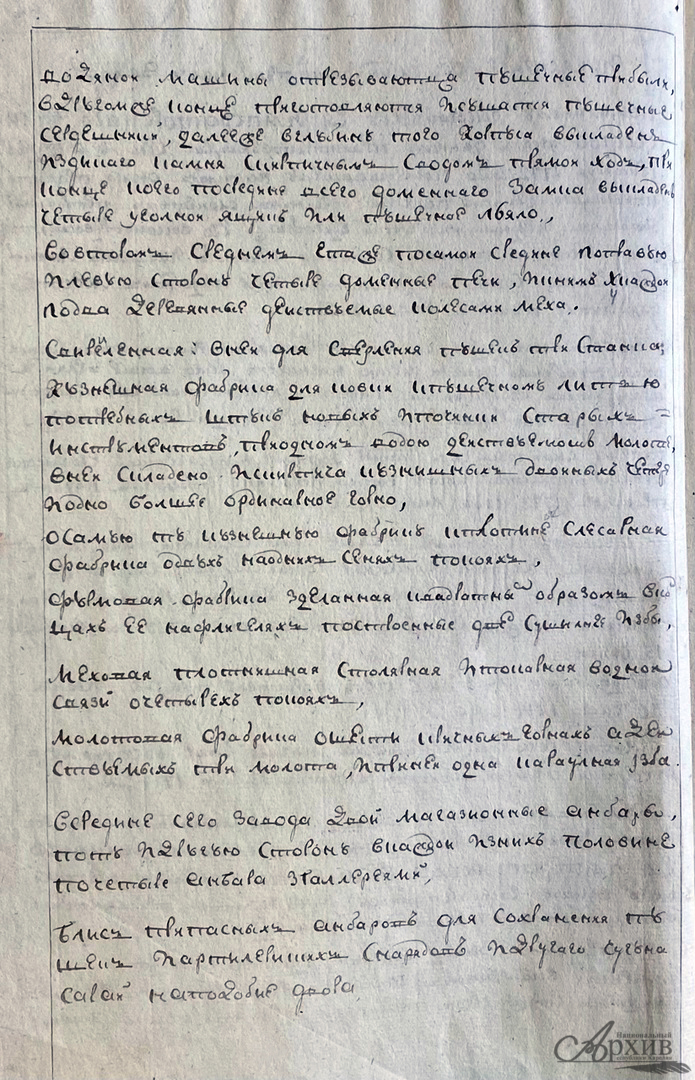 водяной машины отрезываютца пушечные прибыли,
вдругомже конце приготовляются ксушатся пушечные
сердешники, далееже вглубине того корпуса выкладенъ
издикаго камня сиквтичнымъ сводомъ прямой ходъ, при
конце коего последние всего доменнаго замка выкладенъ
четыре уголной ящикъ или пушечное лъяло.,
Вовторомъ среднемъ етаже посамой средине поправую
илевую сторонъ четыре доменные печи, книмъ укаждой
подва деревянные действуемые колесами меха.
Свирѐленная: вней для сверления пушекъ три станка;
Кузнешная фабрика для ковки кпушечномъ литью
потребныхъ штукъ новыхъ ипочинки старыхъ =
инструментовъ, приодномъ водою действуемомъ молоте,
вней складено искирпича кузнишныхъ двонныхъ четыре
иодно болшее ординарное горно,
Осамую ту кузнешную фабрику кплотине слесарная
фабрика одвухъ наодныхъ сеняхъ покояхъ,
Фурмовая фабрика зделанная квадратны образомъ
цахъ ее нафлигеляхъ построенные две сушилные избы,
Меховая плотнишная столярная итокарная водной
связи очетырехъ покояхъ,
Молотовая фабрика ошести кричныхъ горнахъ адей
ствуемыхъ три молота, иприней одна караулная изба.
Середине сего завода двои магазионные анбары,
поту идругую сторонъ вкаждой изнихъ половине
почетыре анбара зталлереями,
Блисъ припасныхъ анбаровъ для сохранения пу
шекъ иартилерииских снарядовъ идругаго чугуна
сарай наподобие двора
Национальный
Архив